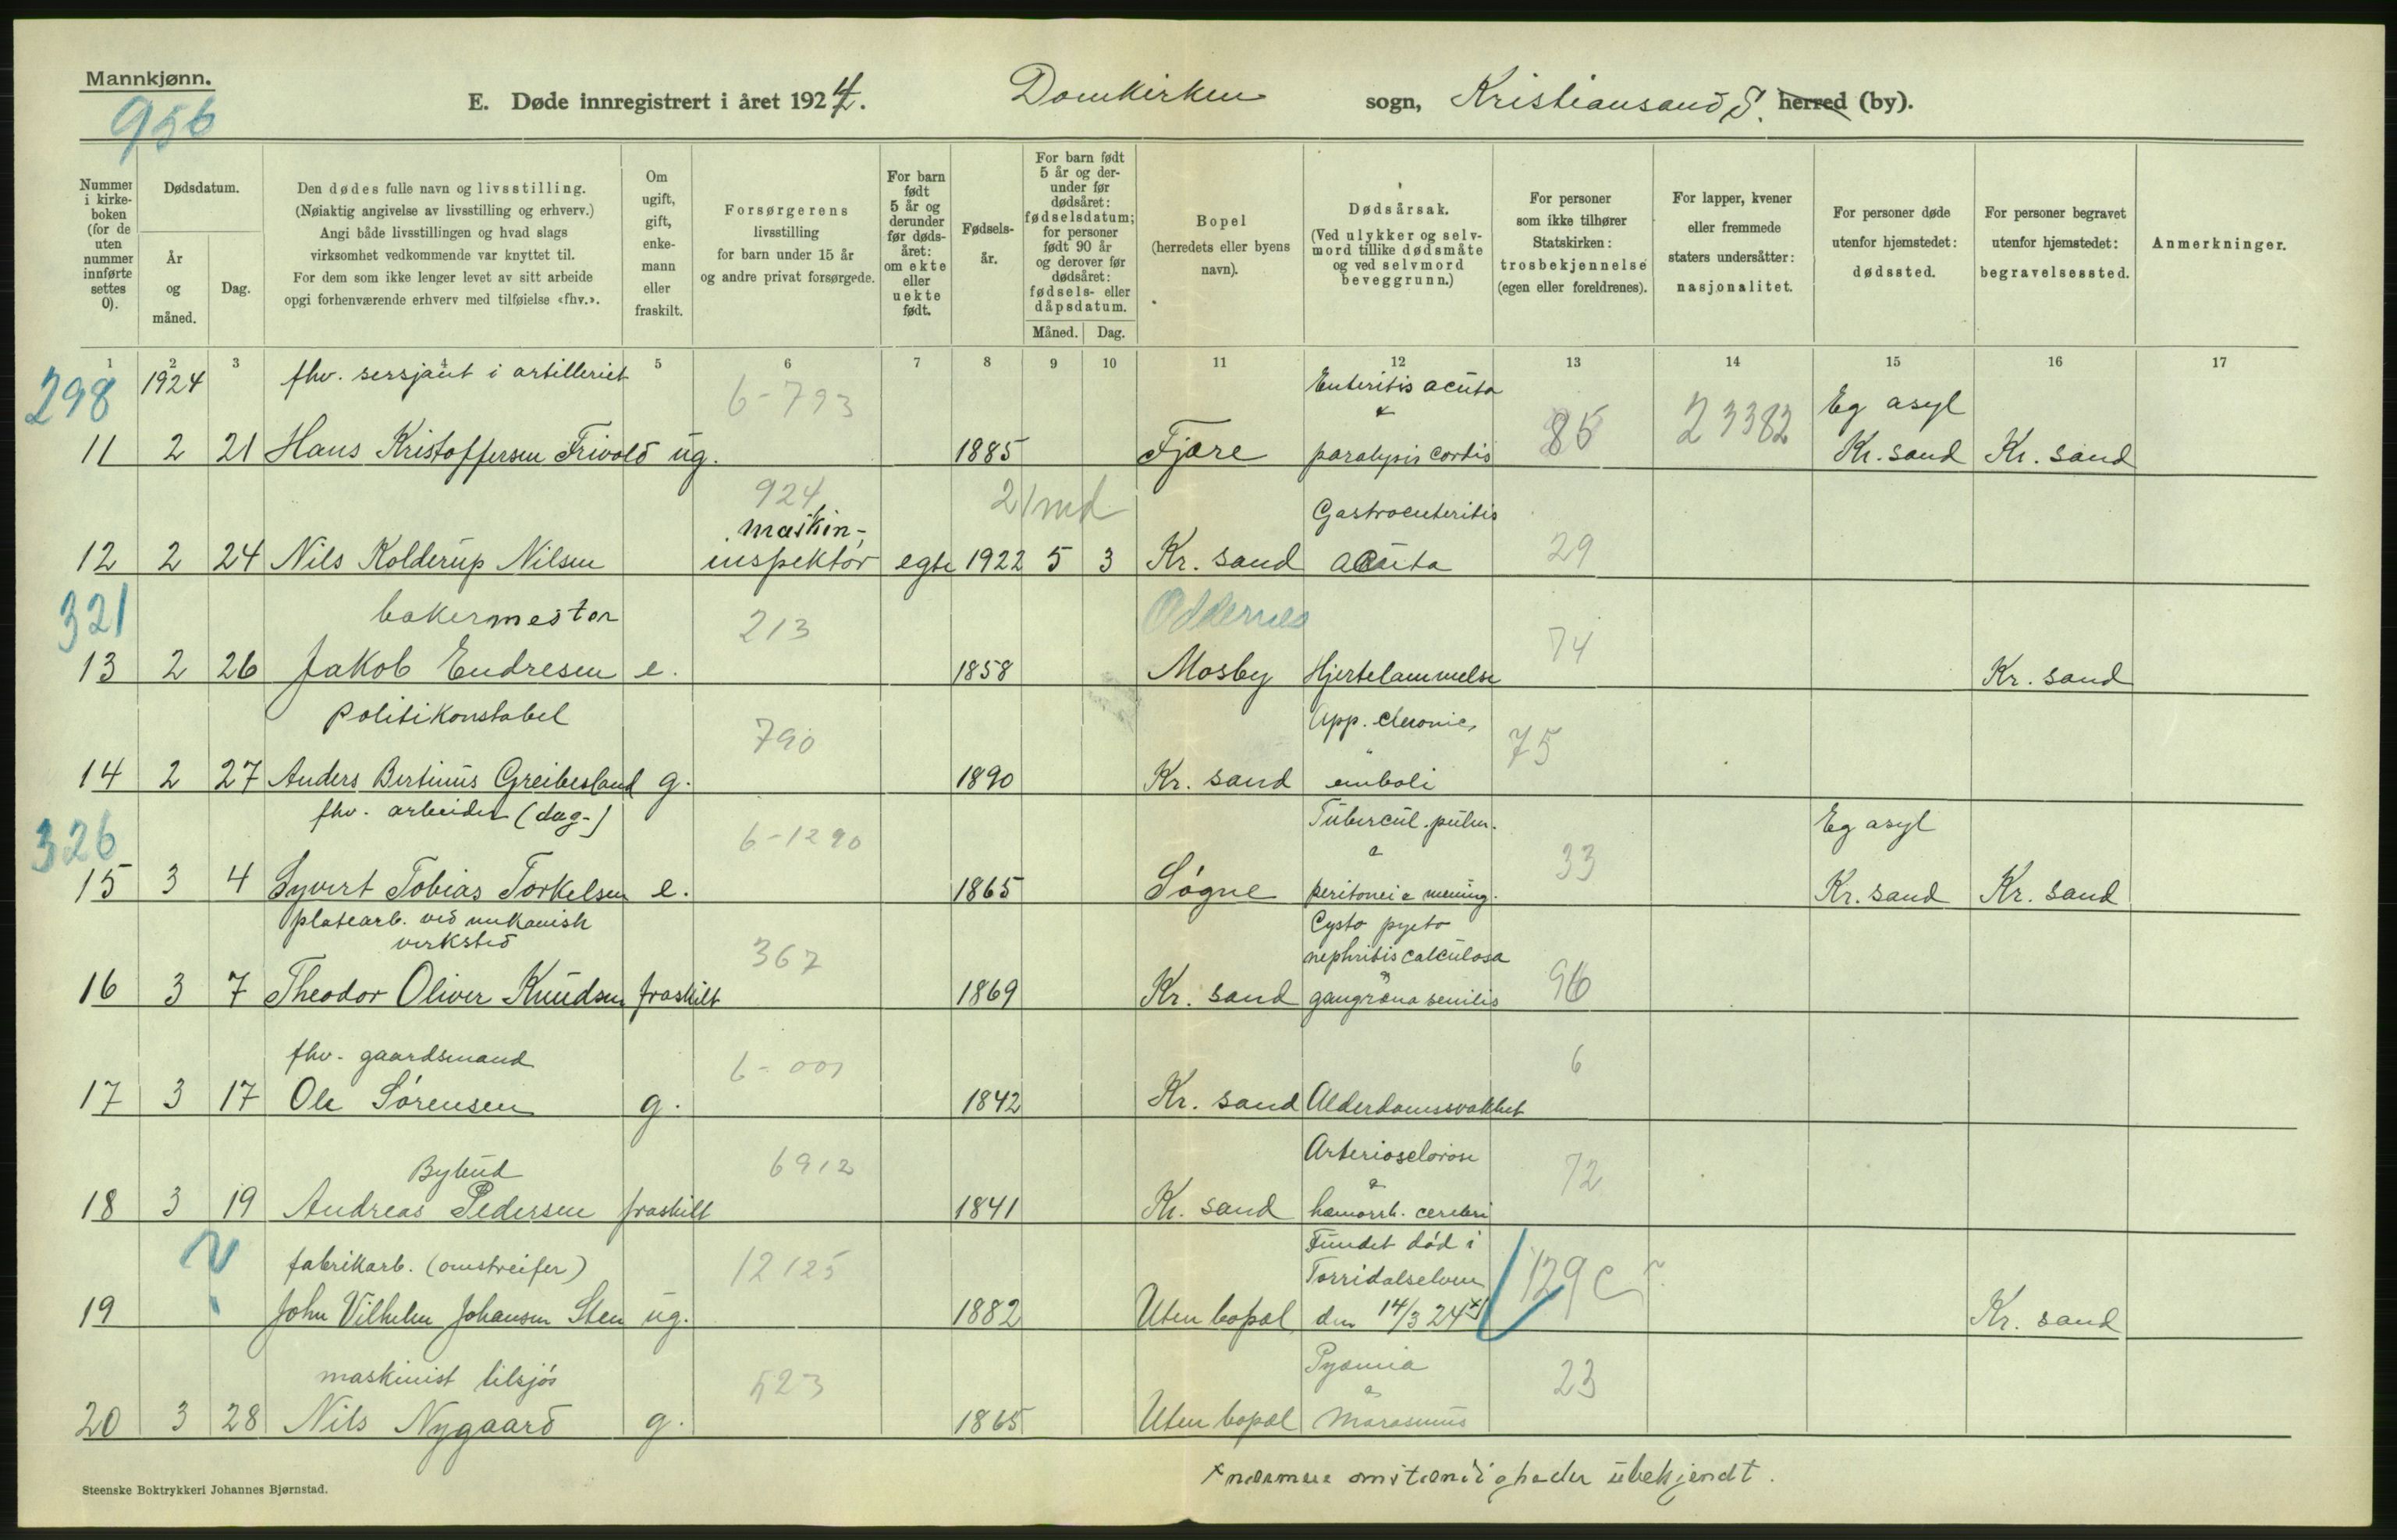 Mannkjønn.
956
E. Døde innregistrert i året 1924. Domkirken sogn, Kristiansand S. herred (by).
Nummer i kirke-boken (for de uten nummer innførte settes 0).
Dødsdatum.
År og måned.
Dag.
Den dødes fulle navn og livsstilling.
(Nøiaktig angivelse av livsstilling og erhverv.)
Angi både livsstillingen og hvad slags
virksomhet vedkommende var knyttet til.
For dem som ikke lenger levet av sitt arbeide
opgi forhenværende erhverv med tilføielse «fhv.».
Om ugift, gift, enke-mann eller fraskilt.
Forsørgerens
livsstilling
for barn under 15 år
og andre privat forsørgede.
For barn født 5 år og derunder før døds-året: om ekte eller uekte født.
Fødsels-år.
For barn født 5 år og der-under før dødsåret: fødselsdatum; for personer født 90 år og derover før dødsåret: fødsels- eller dåpsdatum.
Måned. Dag.
Bopel
(herredets eller byens
navn).
Dødsårsak.
(Ved ulykker og selv-
mord tillike dødsmåte
og ved selvmord
beveggrunn.)
For personer
som ikke tilhører
Statskirken:
trosbekjennelse
(egen eller foreldrenes).
For lapper, kvener
eller fremmede
staters undersåtter:
nasjonalitet.
For personer døde
utenfor hjemstedet:
dødssted.
For personer begravet
utenfor hjemstedet:
begravelsessted.
Anmerkninger.
1 2 3 4 5 6 7 8 9 10 11 12 13 14 15 16 17
298 1924 fhv. sersjant i artilleriet 6-793 Enteritis acuta 85 23382 Eg asyl
11 2 21 Hans Kristoffersen Trivold ug. 1885 Fjære paralysis cordis Kr. sand Kr. sand
924 21 md Gastroenteritis
maskin-
12 2 24 Nils Kolderup Nilsen inspektør egte 1922 5 3 Kr. sand acuta 29
321 bakermester 213 Oddernes 74
13 2 26 Jakob Endresen e. 1858 Mosby Hjertelammelse Kr. sand
politikonstabel 790 App. chronic, 75
14 2 27 Anders Bertinius Greibesland g. 1890 Kr. sand emboli
326 fhv. arbeider (dag-) 6-1290 Tubercul. pulm. 33 Eg asyl
15 3 4 Syvert Tobias Torkelsen e. 1865 Søgne peritonei & mening. Kr. sand Kr. sand
platearb. ved mekanisk Cysto pyelo
verksted 367 nephritis calculosa
16 3 7 Theodor Oliver Knudsen fraskilt 1869 Kr. sand gangræna senilis 96
fhv. gaardsmand 6-001 6
17 3 17 Ole Sørensen g. 1842 Kr. sand Alderdomssvakhet
Bybud 6912 Arteriosclorose 72
18 3 19 Andreas Pedersen fraskilt 1841 Kr. sand hæmorrh. cerebri
fabrikarb. (omstreifer) 12125 Fundet død i
Torridalselven 129c
19 John Vilhelm Johansen Sten ug. 1882 Uten bopæl den 14/3 24 x) Kr. sand
maskinist tilsjøs 523 Pyæmia 23
20 3 28 Nils Nygaard g. 1865 Uten bopæl Marasmus
x nærmere omstændigheder ubekjendt.
Steenske Boktrykkeri Johannes Bjørnstad.